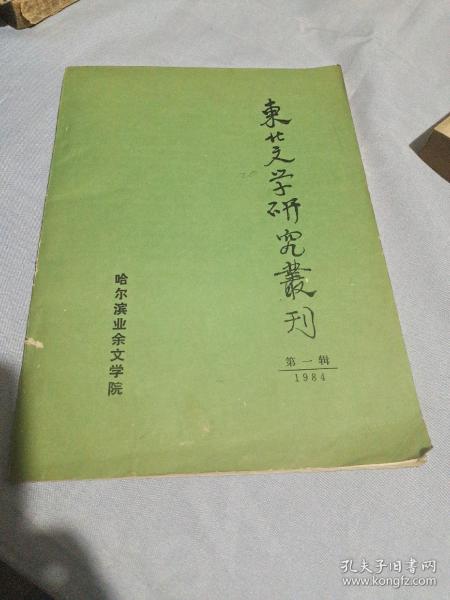 東北文学研究叢刊
第一辑
1984
哈尔滨业余文学院
孔夫子旧书网
www.kongfz.com